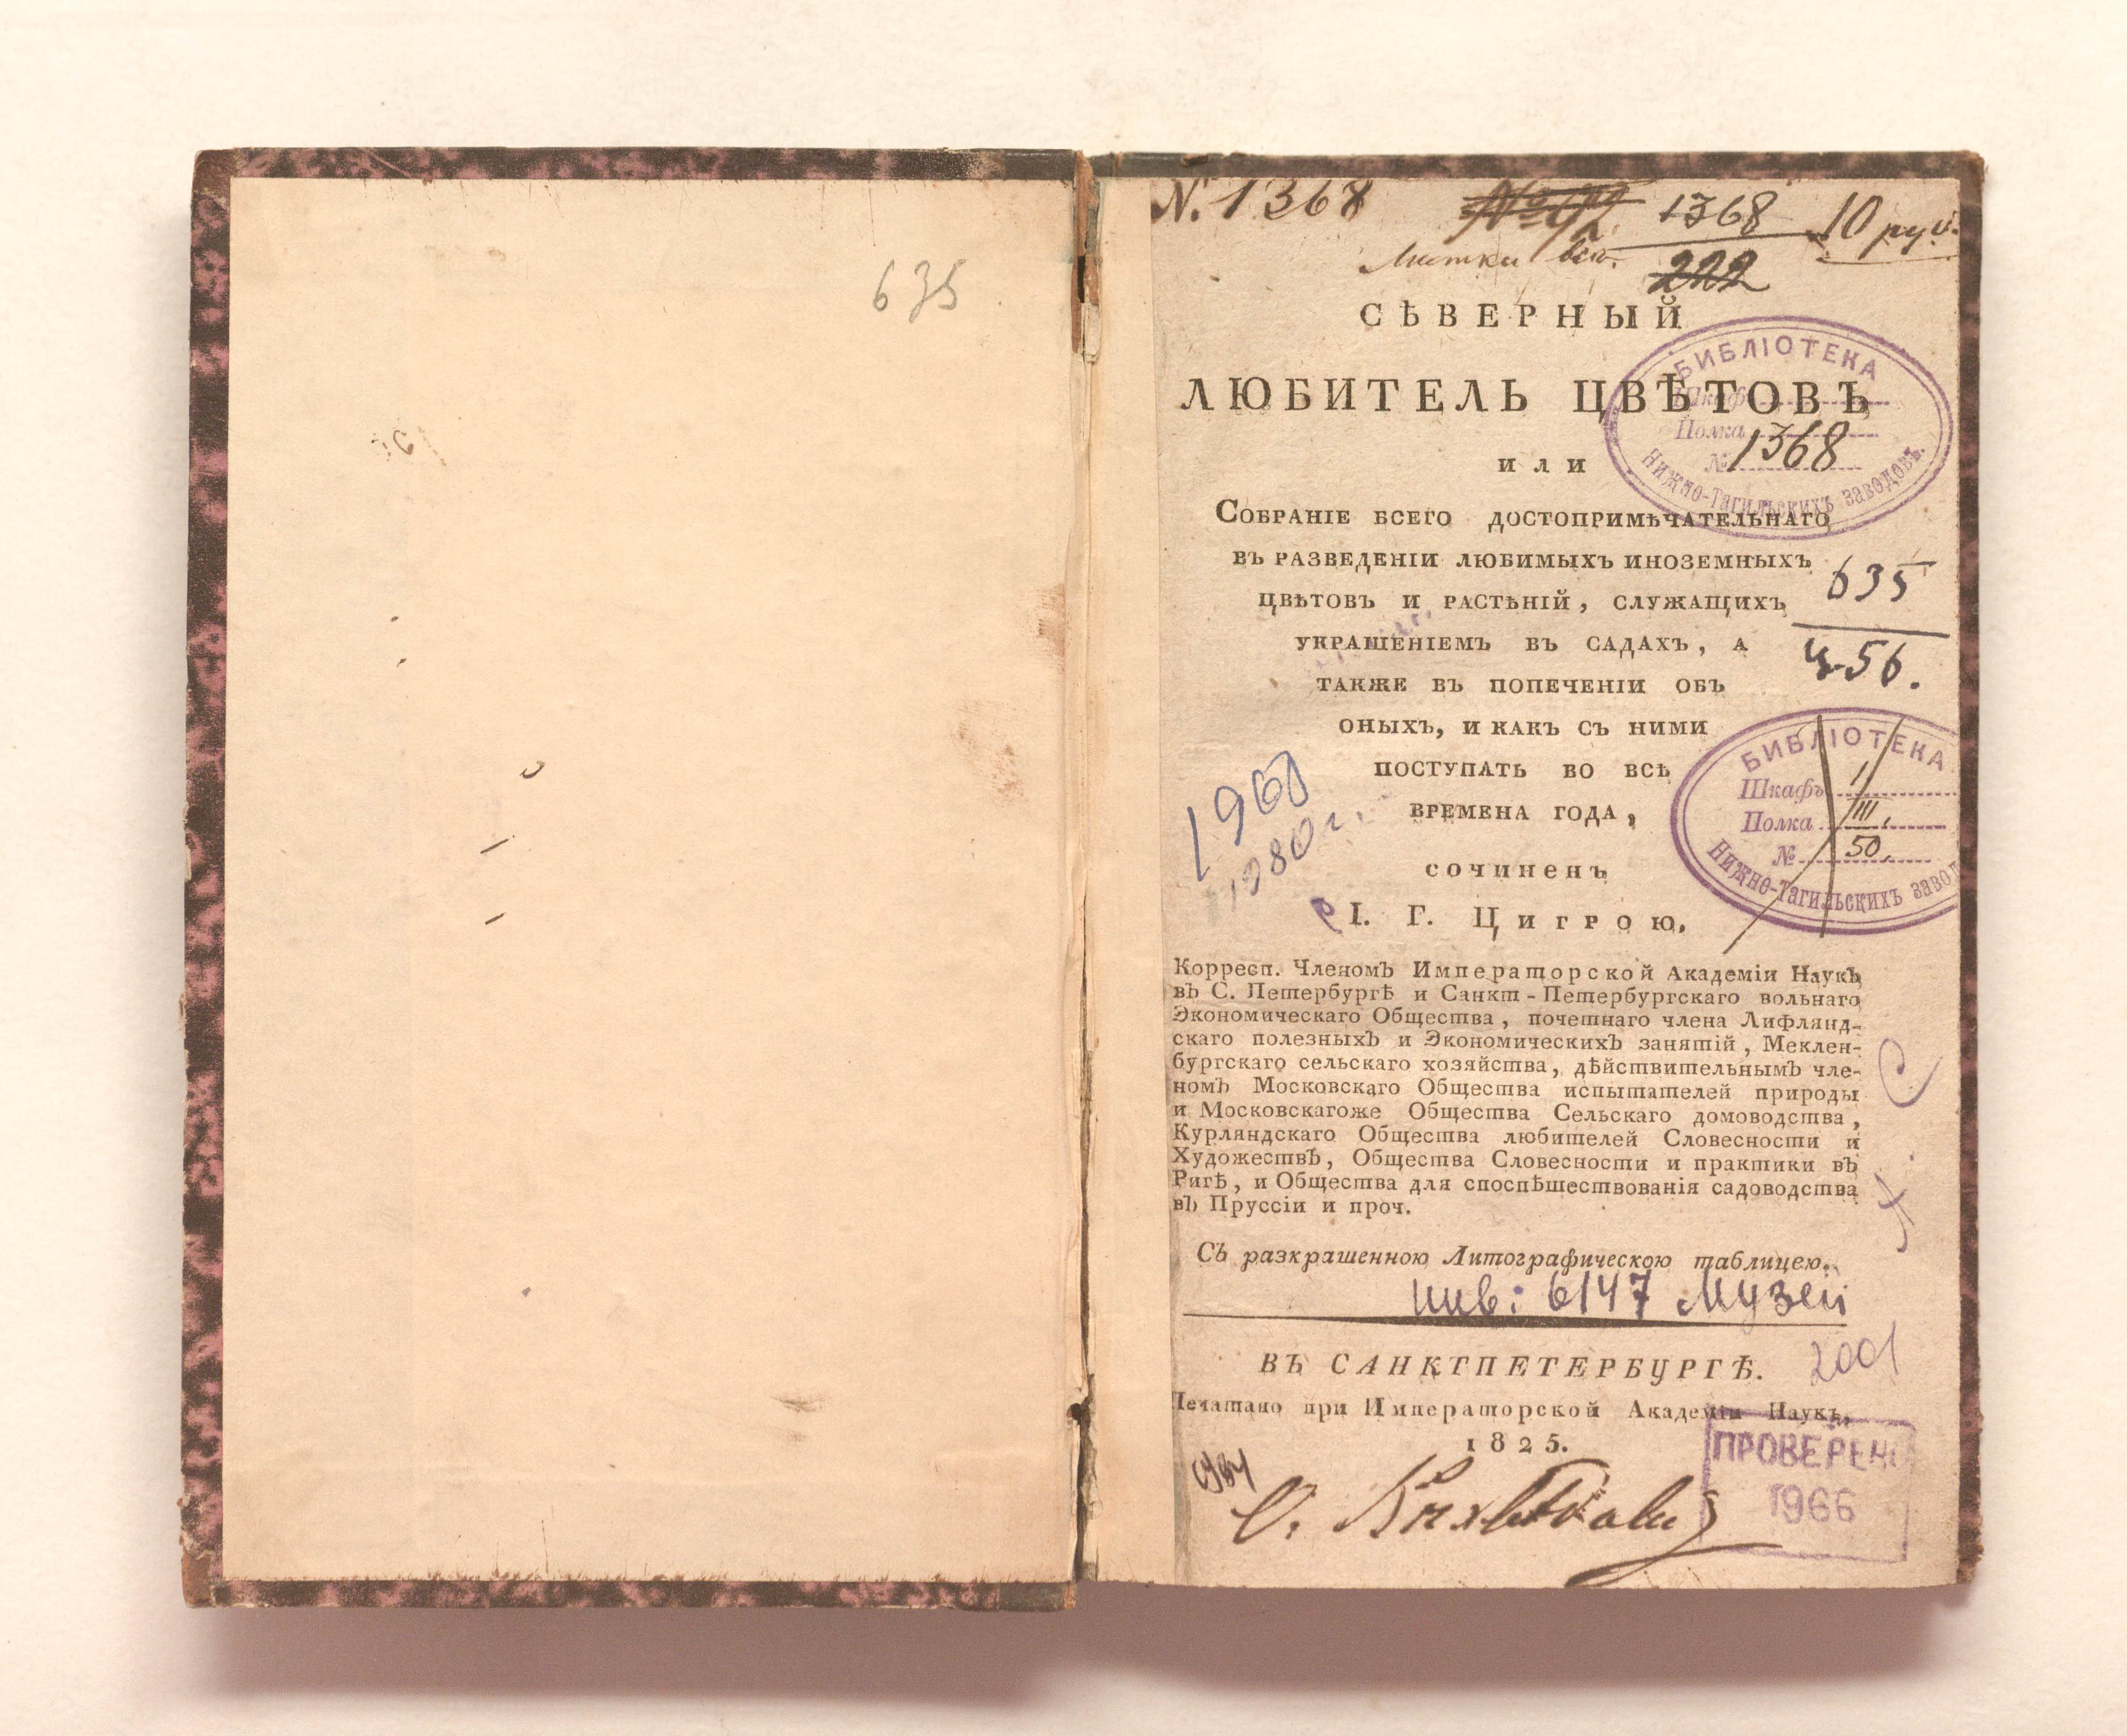 635
N. 1368
1368
10 руб.
222
СѢВЕРНЫЙ
ЛЮБИТЕЛЬ ЦВѢТОВЪ
ИЛИ
СОБРАНІЕ ВСЕГО ДОСТОПРИМѢЧАТЕЛЬНАГО
ВЪ РАЗВЕДЕНІИ ЛЮБИМЫХЪ ИНОЗЕМНЫХЪ
ЦВѢТОВЪ И РАСТѢНІЙ, СЛУЖАЩИХЪ
УКРАШЕНІЕМЪ ВЪ САДАХЪ, А
ТАКЖЕ ВЪ ПОПЕЧЕНІИ ОБЪ
ОНЫХЪ, И КАКЪ СЪ НИМИ
ПОСТУПАТЬ ВО ВСѢ
ВРЕМЕНА ГОДА,
СОЧИНЕНЪ
І. Г. ЦИГРОЮ,
БИБЛІОТЕКА
Шкафъ
Полка
№ 1368
Нижно-Тагильскихъ заводовъ.
635
Ц-56.
БИБЛІОТЕКА
Шкафъ I
Полка III,
№ 50,
Нижно-Тагильскихъ завод
1968
1980 г.
Корресп. Членомъ Императорской Академіи Наукъ
въ С. Петербургѣ и Санкт-Петербургскаго вольнаго
Экономическаго Общества, почетнаго члена Лифлянд-
скаго полезныхъ и Экономическихъ занятій, Меклен-
бургскаго сельскаго хозяйства, дѣйствительнымъ чле-
номъ Московскаго Общества испытателей природы
и Московскагоже Общества Сельскаго домоводства,
Курляндскаго Общества любителей Словесности и
Художествъ, Общества Словесности и практики въ
Ригѣ, и Общества для споспѣшествованія садоводства
въ Пруссіи и проч.
Съ разкрашенною Литографическою таблицею.
инв: 6147 Музей
ВЪ САНКТПЕТЕРБУРГѢ.
2001
Печатано при Императорской Академіи Наукъ,
1825.
ПРОВЕРЕНО
1966